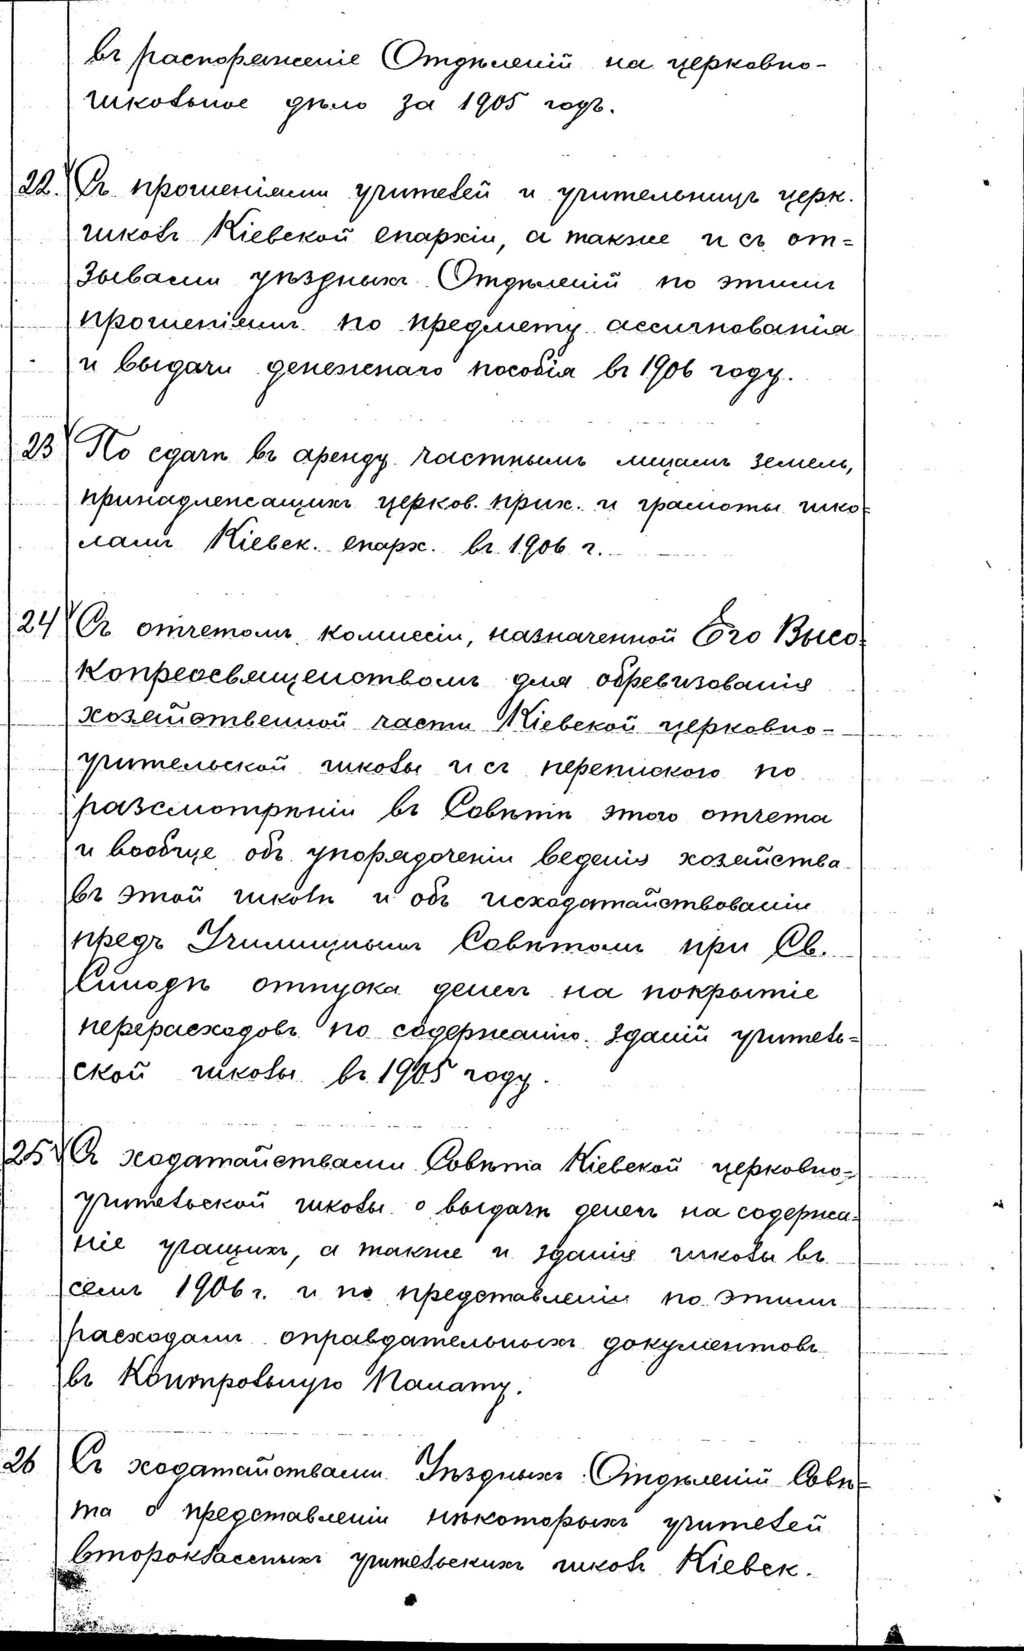 въ распоряженіе Отдѣленій на церковно-
школьное дѣло за 1905 годъ.
22. Съ прошеніями учителей и учительницъ церк.
школъ Кіевской епархіи, а также и съ от=
зывами уѣздныхъ Отдѣленій по этимъ
прошеніямъ по предмету ассигнованія
и выдачи денежнаго пособія въ 1906 году.
23 По сдачѣ въ аренду частнымъ лицамъ земель,
принадлежащихъ церков. прих. и грамоты шко=
ламъ Кіевск. епарх. въ 1906 г.
24 Съ отчетомъ комиссіи, назначенной Его Высо=
копреосвященствомъ для обревизованія
хозяйственной части Кіевской церковно-
учительской школы и съ перепиского по
разсмотрѣніи въ Совѣтѣ этого отчета
и вообще объ упорядоченіи веденія хозяйства
въ этой школѣ и объ исходатайствованіи
предъ Училищнымъ Совѣтомъ при Св.
Синодѣ отпуска денегъ на покрытіе
перерасходовъ по содержанію зданій учитель=
ской школы въ 1905 году.
25 Съ ходатайствами Совѣта Кіевской церковно=
учительской школы о выдачѣ денегъ на содержа=
ніе учащихъ, а также и зданія школы въ
семъ 1906 г. и по представленіи по этимъ
расходамъ оправдательныхъ документовъ
въ Контрольную Палату.
26 Съ ходатайствами Уѣздныхъ Отдѣленій Совѣ=
та о представленіи нѣкоторыхъ учителей
второклассныхъ учительскихъ школъ Кіевск.